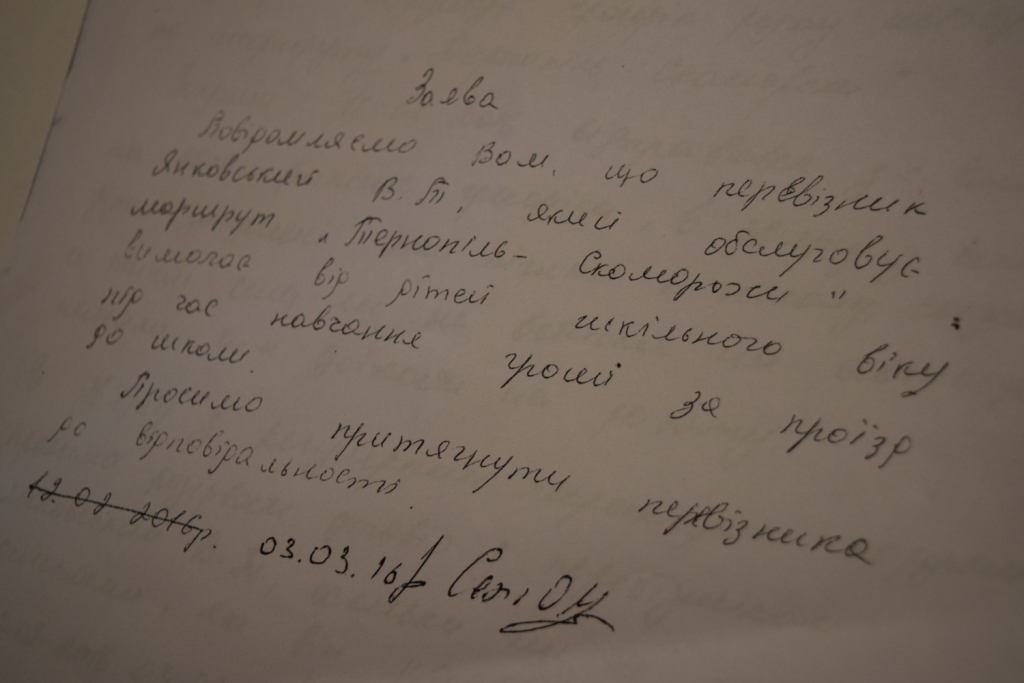 Заява
Повідомляємо Вам, що перевізник
Янковський В.Т, який обслуговує
маршрут „Тернопіль- Скоморохи"
вимагає від дітей шкільного віку
під час навчання грошей за проїзд
до школи.
Просимо притягнути перевізника
до відповідальності.
12.02 2016р. 03.03.16